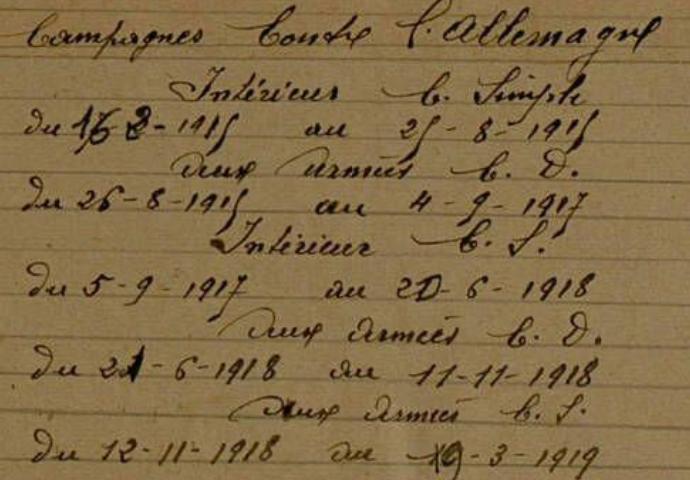 Campagnes Contre l'Allemagne
Intérieur C. Simple
du 16-2-1915 au 25-8-1915
aux armées C. D.
du 26-8-1915 au 4-9-1917
Intérieur C. S.
du 5-9-1917 au 20-6-1918
aux armées C. D.
du 21-6-1918 au 11-11-1918
aux armées C. S.
du 12-11-1918 au 19-3-1919